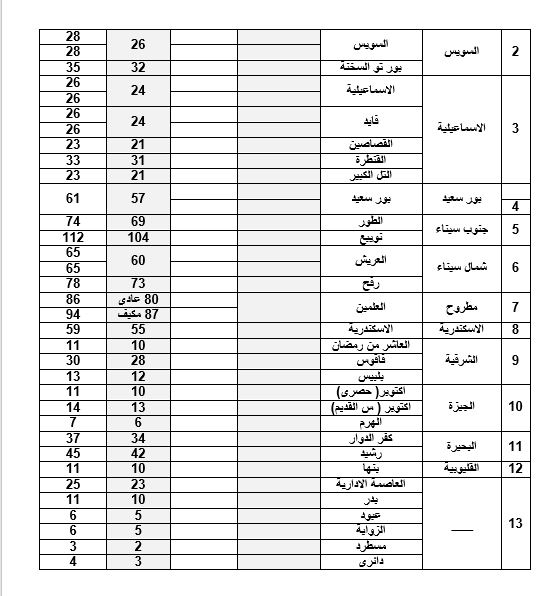 2 السويس السويس 26 28
28
بور تو السخنة 32 35
3 الاسماعيلية الاسماعيلية 24 26
26
فايد 24 26
26
القصاصين 21 23
القنطرة 31 33
التل الكبير 21 23
4 بور سعيد بور سعيد 57 61
5 جنوب سيناء الطور 69 74
نويبع 104 112
6 شمال سيناء العريش 60 65
65
رفح 73 78
7 مطروح العلمين 80 عادى 86
87 مكيف 94
8 الاسكندرية الاسكندرية 55 59
9 الشرقية العاشر من رمضان 10 11
فاقوس 28 30
بلبيس 12 13
10 الجيزة اكتوبر( حصرى) 10 11
اكتوبر ( س القديم) 13 14
الهرم 6 7
11 البحيرة كفر الدوار 34 37
رشيد 42 45
12 القليوبية بنها 10 11
13 ـــــ العاصمة الادارية 23 25
بدر 10 11
عبود 5 6
الزواية 5 6
مسطرد 2 3
دانرى 3 4